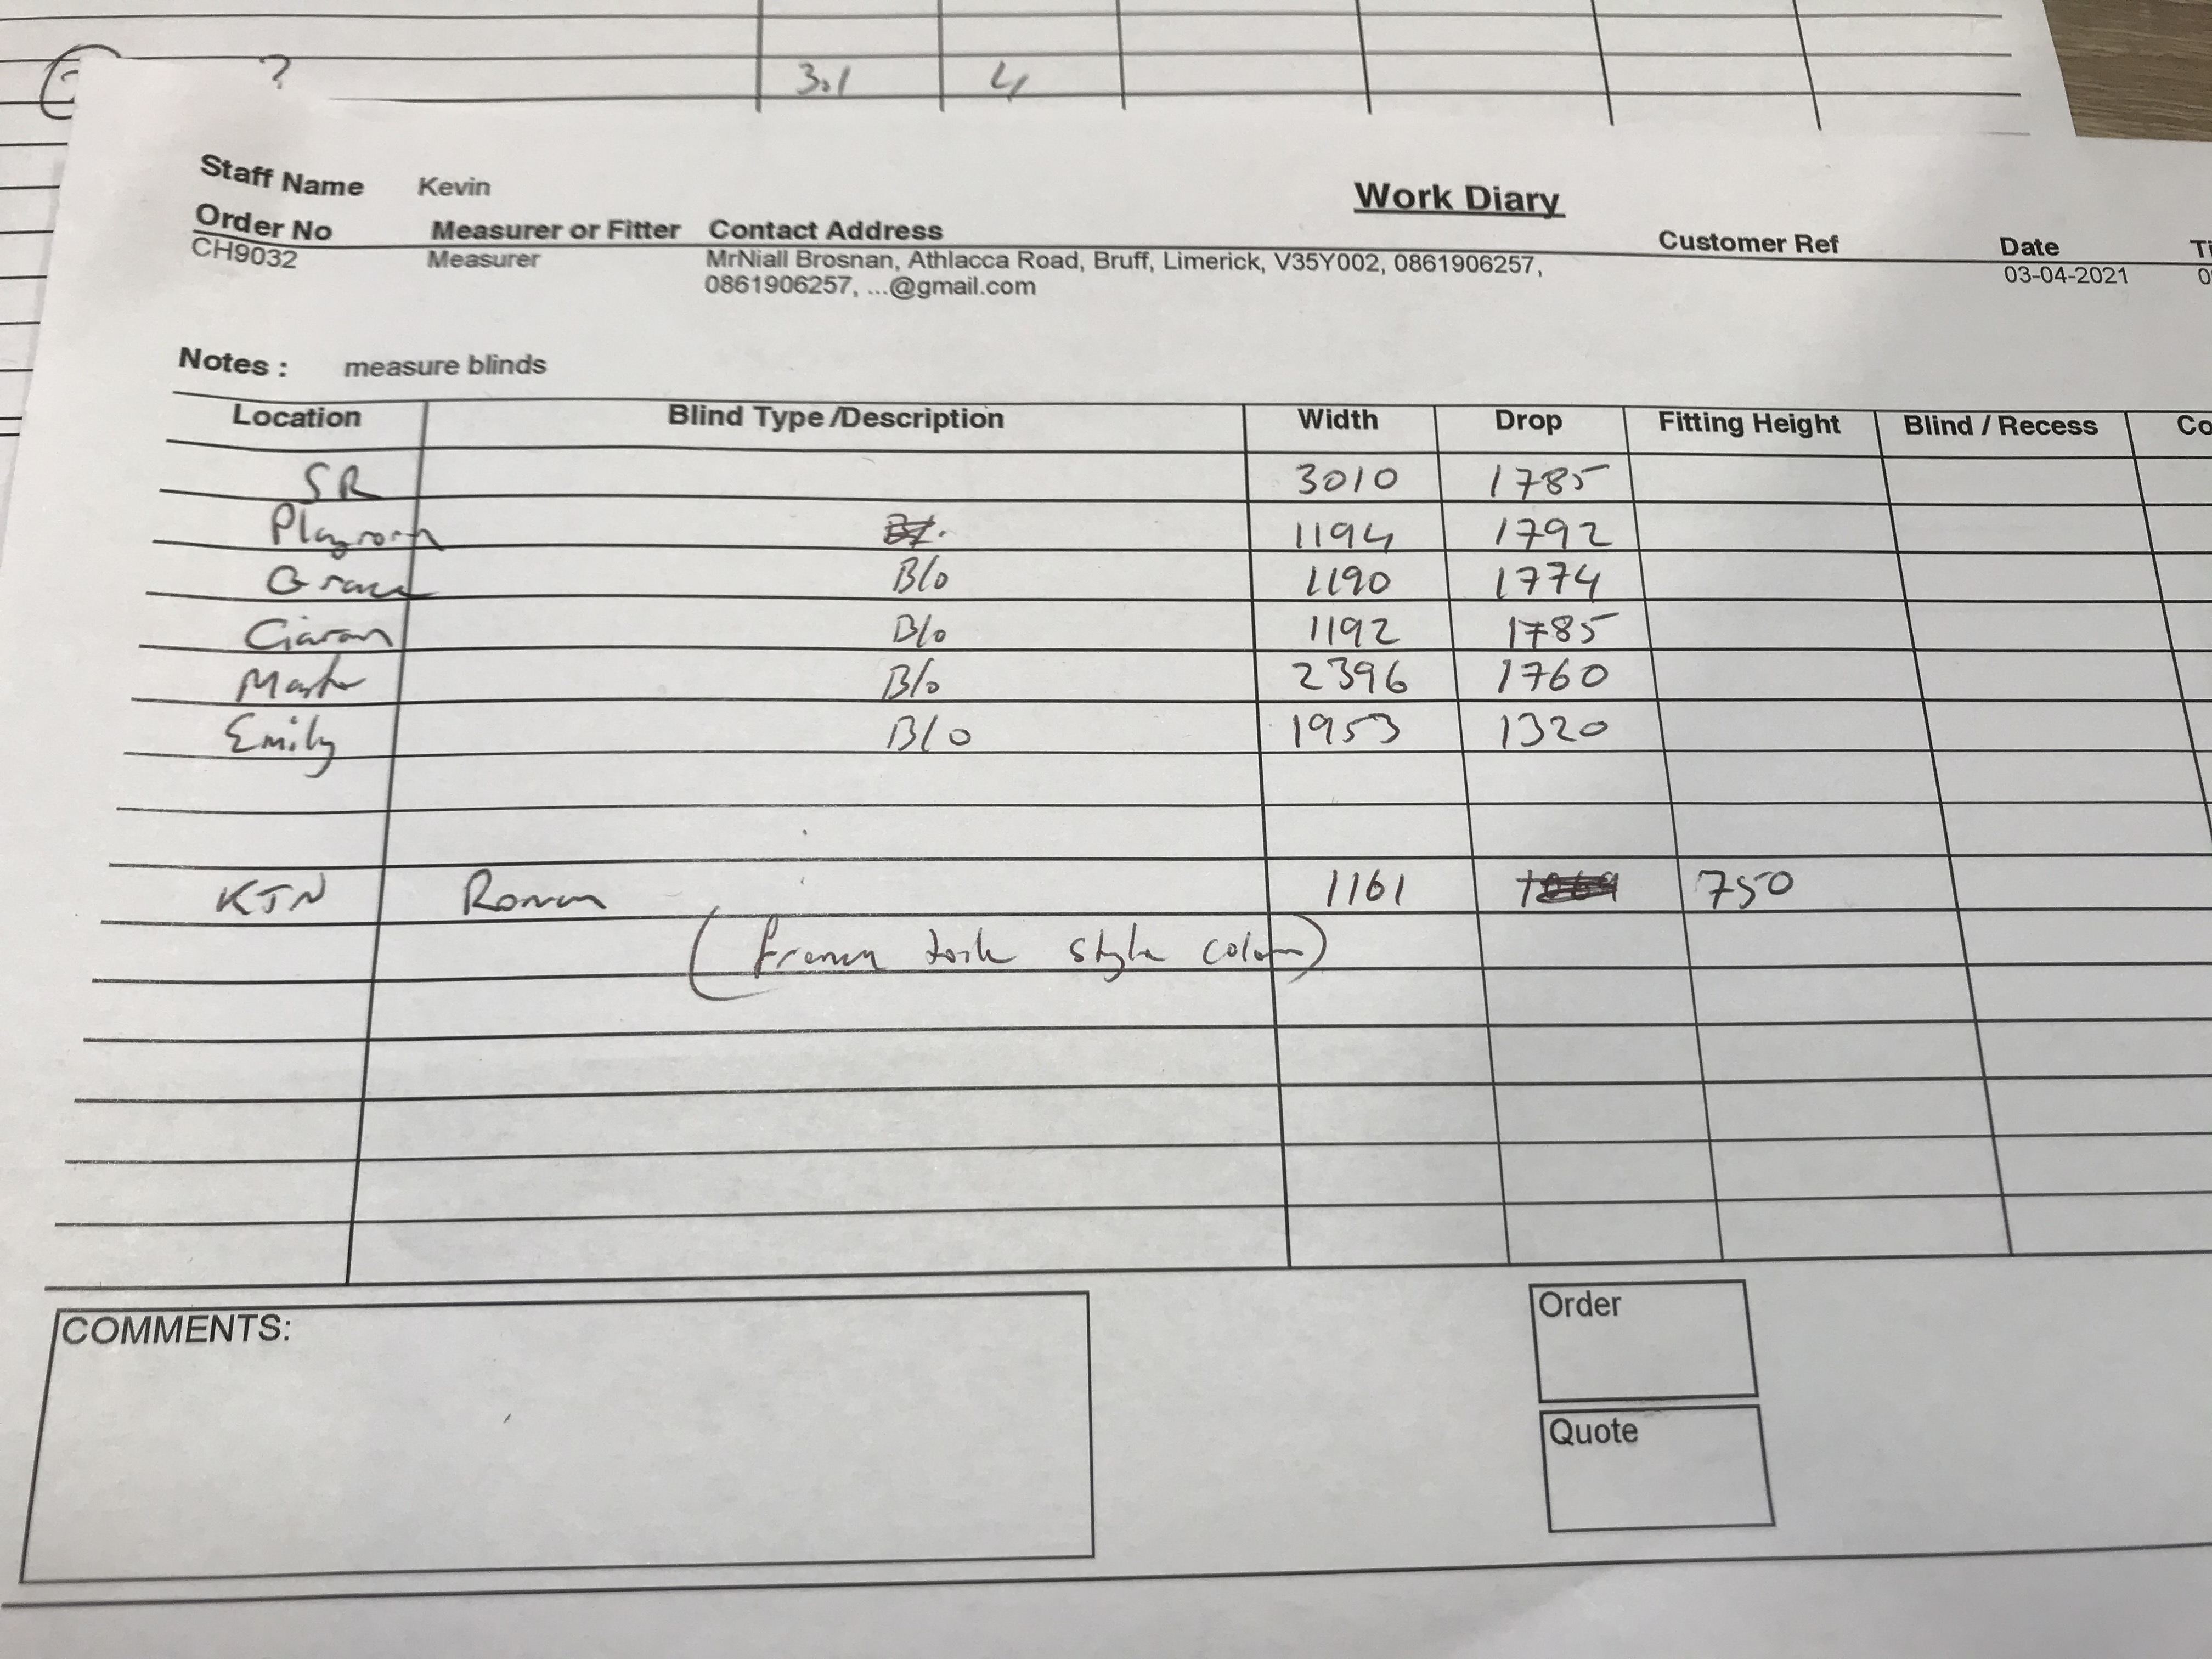 ? 3.1 4
Staff Name Kevin
Work Diary
Order No Measurer or Fitter Contact Address Customer Ref Date
CH9032 Measurer MrNiall Brosnan, Athlacca Road, Bruff, Limerick, V35Y002, 0861906257, 03-04-2021
0861906257, ...@gmail.com
Notes : measure blinds
Location Blind Type /Description Width Drop Fitting Height Blind / Recess
SR 3010 1785
Playroom 1194 1792
Grace B/o 1190 1774
Ciaran B/o 1192 1785
Master B/o 2396 1760
Emily B/o 1953 1320
KTN Roman 1161 750
style
COMMENTS:
Order
Quote